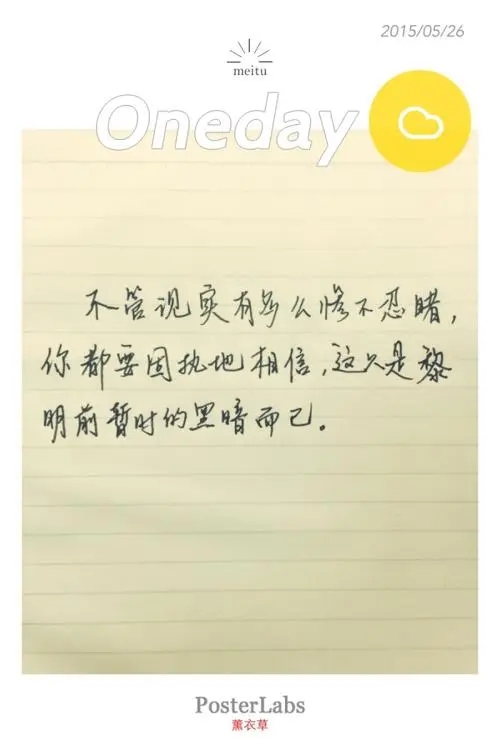 2015/05/26
meitu
Oneday
不管现实有多么惨不忍睹，
你都要固执地相信，这只是黎
明前暂时的黑暗而已。
PosterLabs
薰衣草